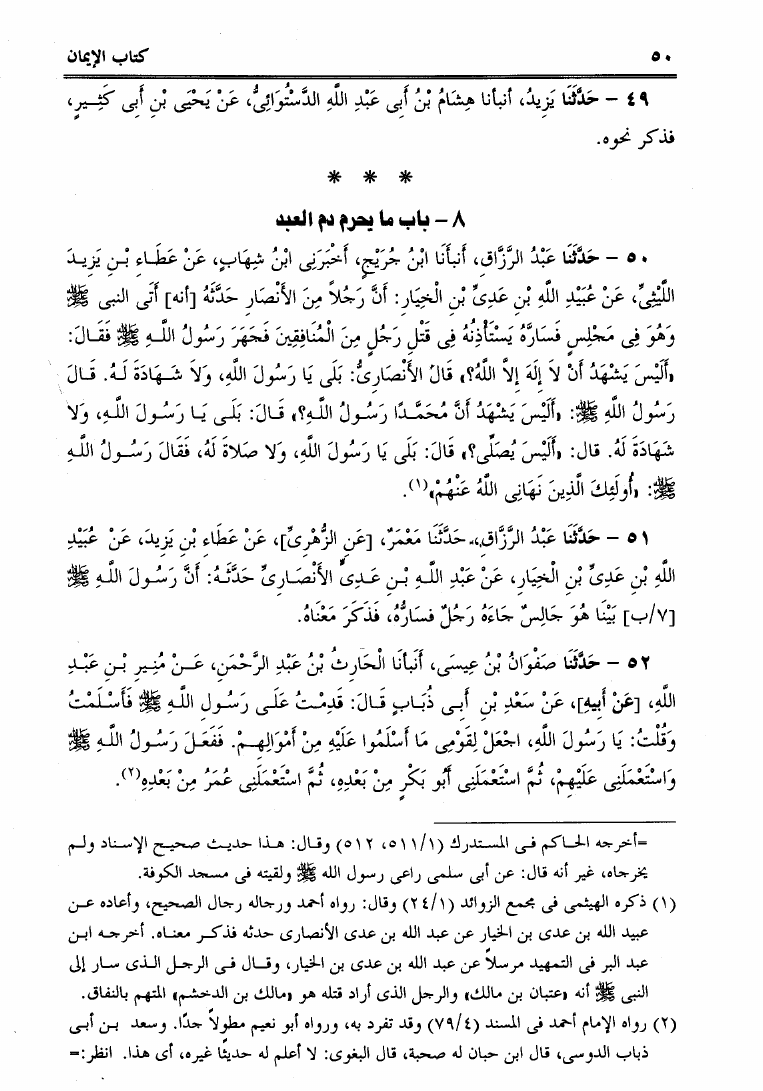 ٥٠ كتاب الإيمان
٤٩ – حَدَّثَنَا يَزِيدُ، أنبأنا هِشَامُ بْنُ أَبِى عَبْدِ اللَّهِ الدَّسْتُوَائِىُّ، عَنْ يَحْيَى بْنِ أَبِى كَثِـيرٍ،
فذكر نحوه.
* * *
٨ – باب ما يحرم دم العبد
٥٠ – حَدَّثَنَا عَبْدُ الرَّزَّاقِ، أَنبَأَنَا ابْنُ جُرَيْجٍ، أَخْبَرَنِى ابْنُ شِهَابٍ، عَنْ عَطَاءِ بْـنِ يَزِيـدَ
اللَّيْثِىِّ، عَنْ عُبَيْدِ اللَّهِ بْنِ عَدِىِّ بْنِ الْخِيَارِ: أَنَّ رَجُلاً مِنَ الأَنْصَارِ حَدَّثَهُ [أنه] أَتَى النبى ﷺ
وَهُوَ فِى مَجْلِسٍ فَسَارَّهُ يَسْتَأْذِنُهُ فِى قَتْلِ رَجُلٍ مِنَ الْمُنَافِقِينَ فَجَهَرَ رَسُولُ اللَّـهِ ﷺ فَقَـالَ:
«أَلَيْسَ يَشْهَدُ أَنْ لاَ إِلَهَ إِلاَّ اللَّهُ؟» قَالَ الأَنْصَارِىُّ: بَلَى يَا رَسُولَ اللَّهِ، وَلاَ شَـهَادَةَ لَـهُ. قَـالَ
رَسُولُ اللَّهِ ﷺ: «أَلَيْسَ يَشْهَدُ أَنَّ مُحَمَّـدًا رَسُـولُ اللَّـهِ؟» قَـالَ: بَلَـى يَـا رَسُـولَ اللَّـهِ، وَلا
شَهَادَةَ لَهُ. قال: «أَلَيْسَ يُصَلِّى؟» قَالَ: بَلَى يَا رَسُولَ اللَّهِ، وَلا صَلاةَ لَهُ، فَقَالَ رَسُـولُ اللَّـهِ
ﷺ: «أُولَئِكَ الَّذِينَ نَهَانِى اللَّهُ عَنْهُمْ»(١).
٥١ – حَدَّثَنَا عَبْدُ الرَّزَّاقِ، حَدَّثَنَا مَعْمَرٌ، [عَنِ الزُّهْرِىِّ]، عَنْ عَطَاءِ بْنِ يَزِيدَ، عَنْ عُبَيْدِ
اللَّهِ بْنِ عَدِىِّ بْنِ الْخِيَارِ، عَنْ عَبْدِ اللَّـهِ بْـنِ عَـدِىٍّ الأَنْصَـارِىِّ حَدَّثَـهُ: أَنَّ رَسُـولَ اللَّـهِ ﷺ
[٧/ب] بَيْنَا هُوَ جَالِسٌ جَاءَهُ رَجُلٌ فسَارُّهُ، فَذَكَرَ مَعْنَاهُ.
٥٢ – حَدَّثَنَا صَفْوَانُ بْنُ عِيسَى، أَنبأنا الْحَارِثُ بْنُ عَبْدِ الرَّحْمَنِ، عَـنْ مُنِيرِ بْـنِ عَبْـدِ
اللَّهِ، [عَنْ أَبِيهِ]، عَنْ سَعْدِ بْنِ أَبِـى ذُبَـابٍ قَـالَ: قَدِمْـتُ عَلَـى رَسُـولِ اللَّـهِ ﷺ فَأَسْـلَمْتُ
وَقُلْتُ: يَا رَسُولَ اللَّهِ، اجْعَلْ لِقَوْمِى مَا أَسْلَمُوا عَلَيْهِ مِنْ أَمْوَالِهِـمْ. فَفَعَـلَ رَسُـولُ اللَّـهِ ﷺ
وَاسْتَعْمَلَنِى عَلَيْهِمْ، ثُمَّ اسْتَعْمَلَنِى أَبُو بَكْرٍ مِنْ بَعْدِهِ، ثُمَّ اسْتَعْمَلَنِى عُمَرُ مِنْ بَعْدِهِ(٢).
=أخرجه الحـاكم فـى المستدرك (٥١١/١، ٥١٢) وقـال: هـذا حديـث صحيـح الإسـناد ولـم
يخرجاه، غير أنه قال: عن أبى سلمى راعى رسول الله ﷺ ولقيته فى مسجد الكوفة.
(١) ذكره الهيثمى فى مجمع الزوائد (٢٤/١) وقال: رواه أحمد ورجاله رجال الصحيح، وأعاده عـن
عبيد الله بن عدى بن الخيار عن عبد الله بن عدى الأنصارى حدثه فذكـر معنـاه. أخرجـه ابـن
عبد البر فى التمهيد مرسلاً عن عبد الله بن عدى بن الخيار، وقـال فـى الرجـل الـذى سـار إلى
النبى ﷺ أنه «عتبان بن مالك» والرجل الذى أراد قتله هو «مالك بن الدخشم» المتهم بالنفاق.
(٢) رواه الإمام أحمد فى المسند (٧٩/٤) وقد تفرد به، ورواه أبو نعيم مطولاً جدًا. وسعد بـن أبـى
ذباب الدوسى، قال ابن حبان له صحبة، قال البغوى: لا أعلم له حديثًا غيره، أى هذا. انظر:=